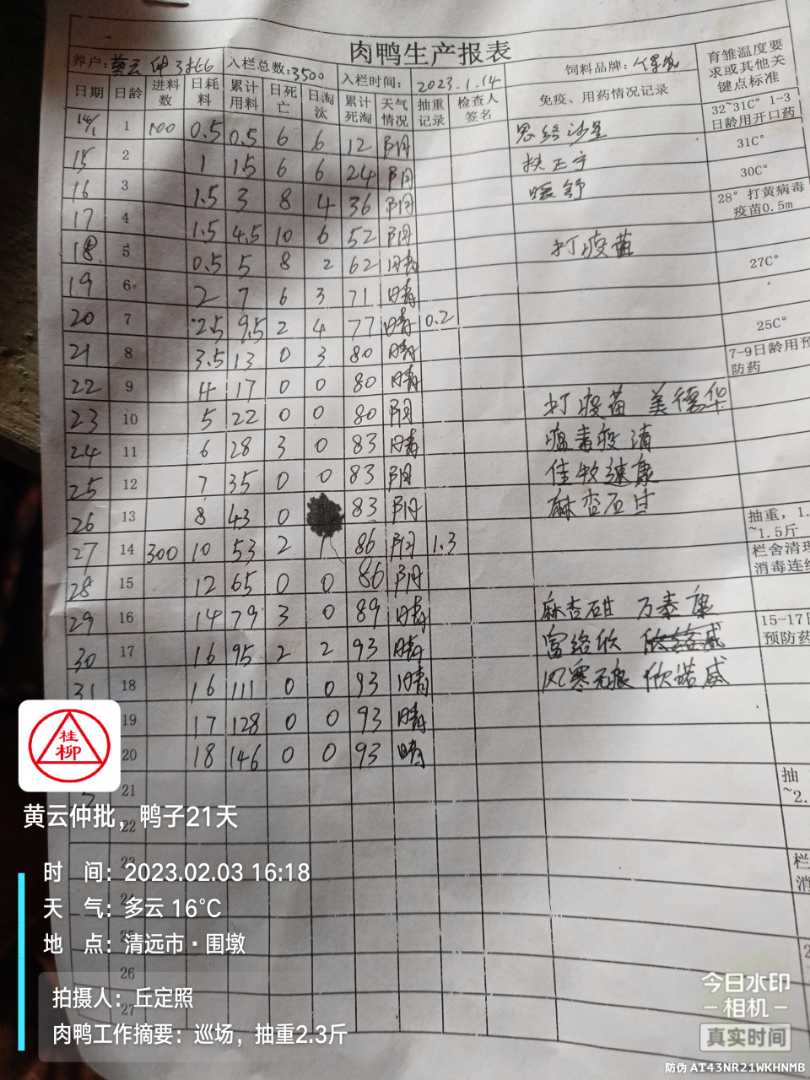 肉鸭生产报表
养户: 黄云仲 3批 入栏总数: 3500 入栏时间: 2023.1.14 饲料品牌: 育雏温度要求或其他关键点标准
日期 日龄 进料数 日耗料 累计用料 日死亡 日淘汰 累计死淘 天气情况 抽重记录 检查人签名 免疫、用药情况记录
14/1 1 100 0.5 0.5 6 6 12 阴 32~31C° 1-3日龄用开口药
15 2 1 1.5 6 6 24 阴 扶正 31C°
16 3 1.5 3 8 4 36 阴 暖舒 30C°
17 4 1.5 4.5 10 6 52 阴 28° 打黄病毒疫苗0.5m
18 5 0.5 5 8 2 62 晴 打疫苗
19 6 2 7 6 3 71 晴 27C°
20 7 2.5 9.5 2 4 77 晴 0.2
21 8 3.5 13 0 3 80 晴 25C°
22 9 4 17 0 0 80 晴 7-9日龄用预防药
23 10 5 22 0 0 80 阴 打疫苗 美德华
24 11 6 28 3 0 83 晴 瘟毒败清
25 12 7 35 0 0 83 阴 佳牧速康
26 13 8 43 0 83 阴 麻杏石甘
27 14 300 10 53 2 1 86 阴 1.3 抽重，1.~1.5斤
28 15 12 65 0 0 86 阴 栏舍清理消毒连续
29 16 14 79 3 0 89 晴 麻杏石甘 万泰康
30 17 16 95 2 2 93 晴 15-17日预防药
31 18 16 111 0 0 93 晴 风寒无痕 欣诺威
19 17 128 0 0 93 晴
20 18 146 0 0 93 晴
21 抽~2.
22
23 栏
24 消
26
27
桂柳
黄云仲批，鸭子21天
时 间: 2023.02.03 16:18
天 气: 多云 16℃
地 点: 清远市·围墩
拍摄人: 丘定照
肉鸭工作摘要: 巡场，抽重2.3斤
今日水印
-相机-
真实时间
防伪 AT43NR21WKHNMB